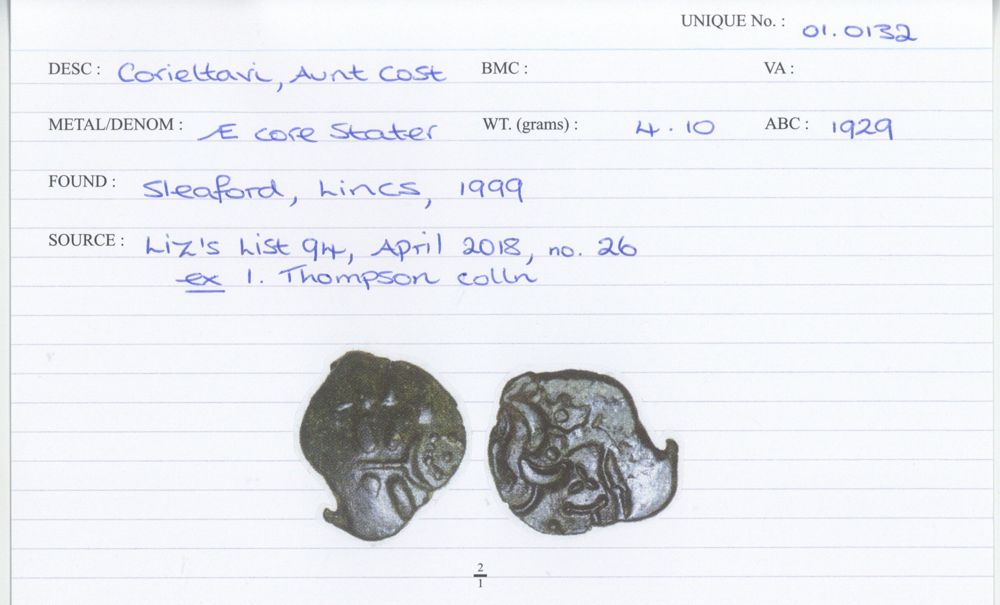 UNIQUE No. : 01.0132
DESC : Corieltavi, Aunt Cost BMC : VA :
METAL/DENOM : Æ core Stater WT. (grams) : 4.10 ABC : 1929
FOUND : Sleaford, Lincs, 1999
SOURCE : Liz's List 94, April 2018, no. 26
ex I. Thompson colln
2
1